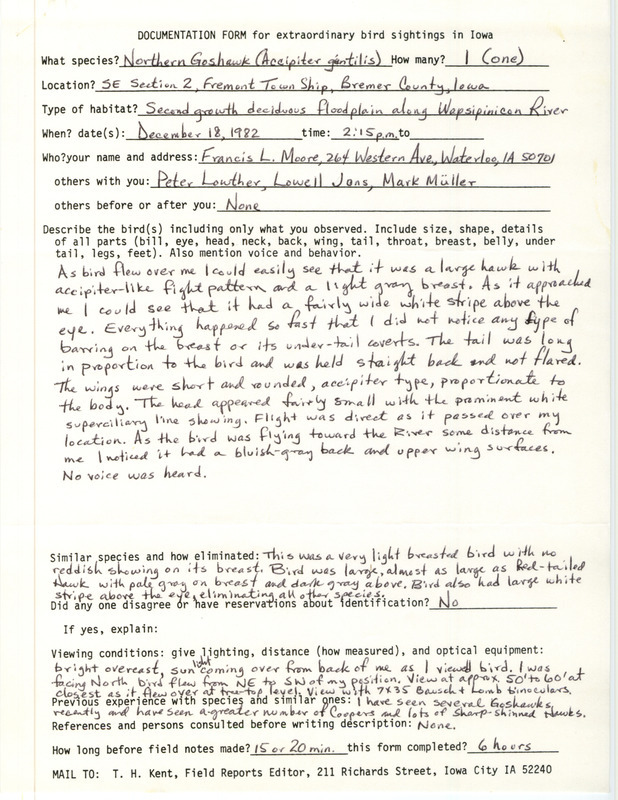 DOCUMENTATION FORM for extraordinary bird sightings in Iowa
What species? Northern Goshawk (Accipiter gentilis) How many? 1 (one)
Location? SE Section 2, Fremont Town Ship, Bremer County, Iowa
Type of habitat? Second growth deciduous floodplain along Wapsipinicon River
When? date(s): December 18, 1982 time: 2:15 p.m. to
Who? your name and address: Francis L. Moore, 264 Western Ave., Waterloo, IA 50701
others with you: Peter Lowther, Lowell Jons, Mark Müller
others before or after you: None
Describe the bird(s) including only what you observed. Include size, shape, details
of all parts (bill, eye, head, neck, back, wing, tail, throat, breast, belly, under
tail, legs, feet). Also mention voice and behavior.
As bird flew over me I could easily see that it was a large hawk with
accipiter-like fight pattern and a light gray breast. As it approached
me I could see that it had a fairly wide white stripe above the
eye. Everything happened so fast that I did not notice any type of
barring on the breast or its under-tail coverts. The tail was long
in proportion to the bird and was held straight back and not flared.
The wings were short and rounded, accipiter type, proportionate to
the body. The head appeared fairly small with the prominent white
superciliary line showing. Flight was direct as it passed over my
location. As the bird was flying toward the River some distance from
me I noticed it had a bluish-gray back and upper wing surfaces.
No voice was heard.
Similar species and how eliminated: This was a very light breasted bird with no
reddish showing on its breast. Bird was large, almost as large as Red-tailed
Hawk with pale gray on breast and dark gray above. Bird also had large white
stripe above the eye, eliminating all other species.
Did any one disagree or have reservations about identification? No
If yes, explain:
Viewing conditions: give lighting, distance (how measured), and optical equipment:
bright overcast, sun light coming over from back of me as I viewed bird. I was
facing North bird flew from NE to SW of my position. View at approx 50' to 60' at
closest as it flew over at tree-top level. View with 7x35 Bausch & Lomb binoculars.
Previous experience with species and similar ones: I have seen several Goshawks
recently and have seen a greater number of Coopers and lots of Sharp-shinned Hawks.
References and persons consulted before writing description: None.
How long before field notes made? 15 or 20 min. this form completed? 6 hours
MAIL TO: T. H. Kent, Field Reports Editor, 211 Richards Street, Iowa City IA 52240